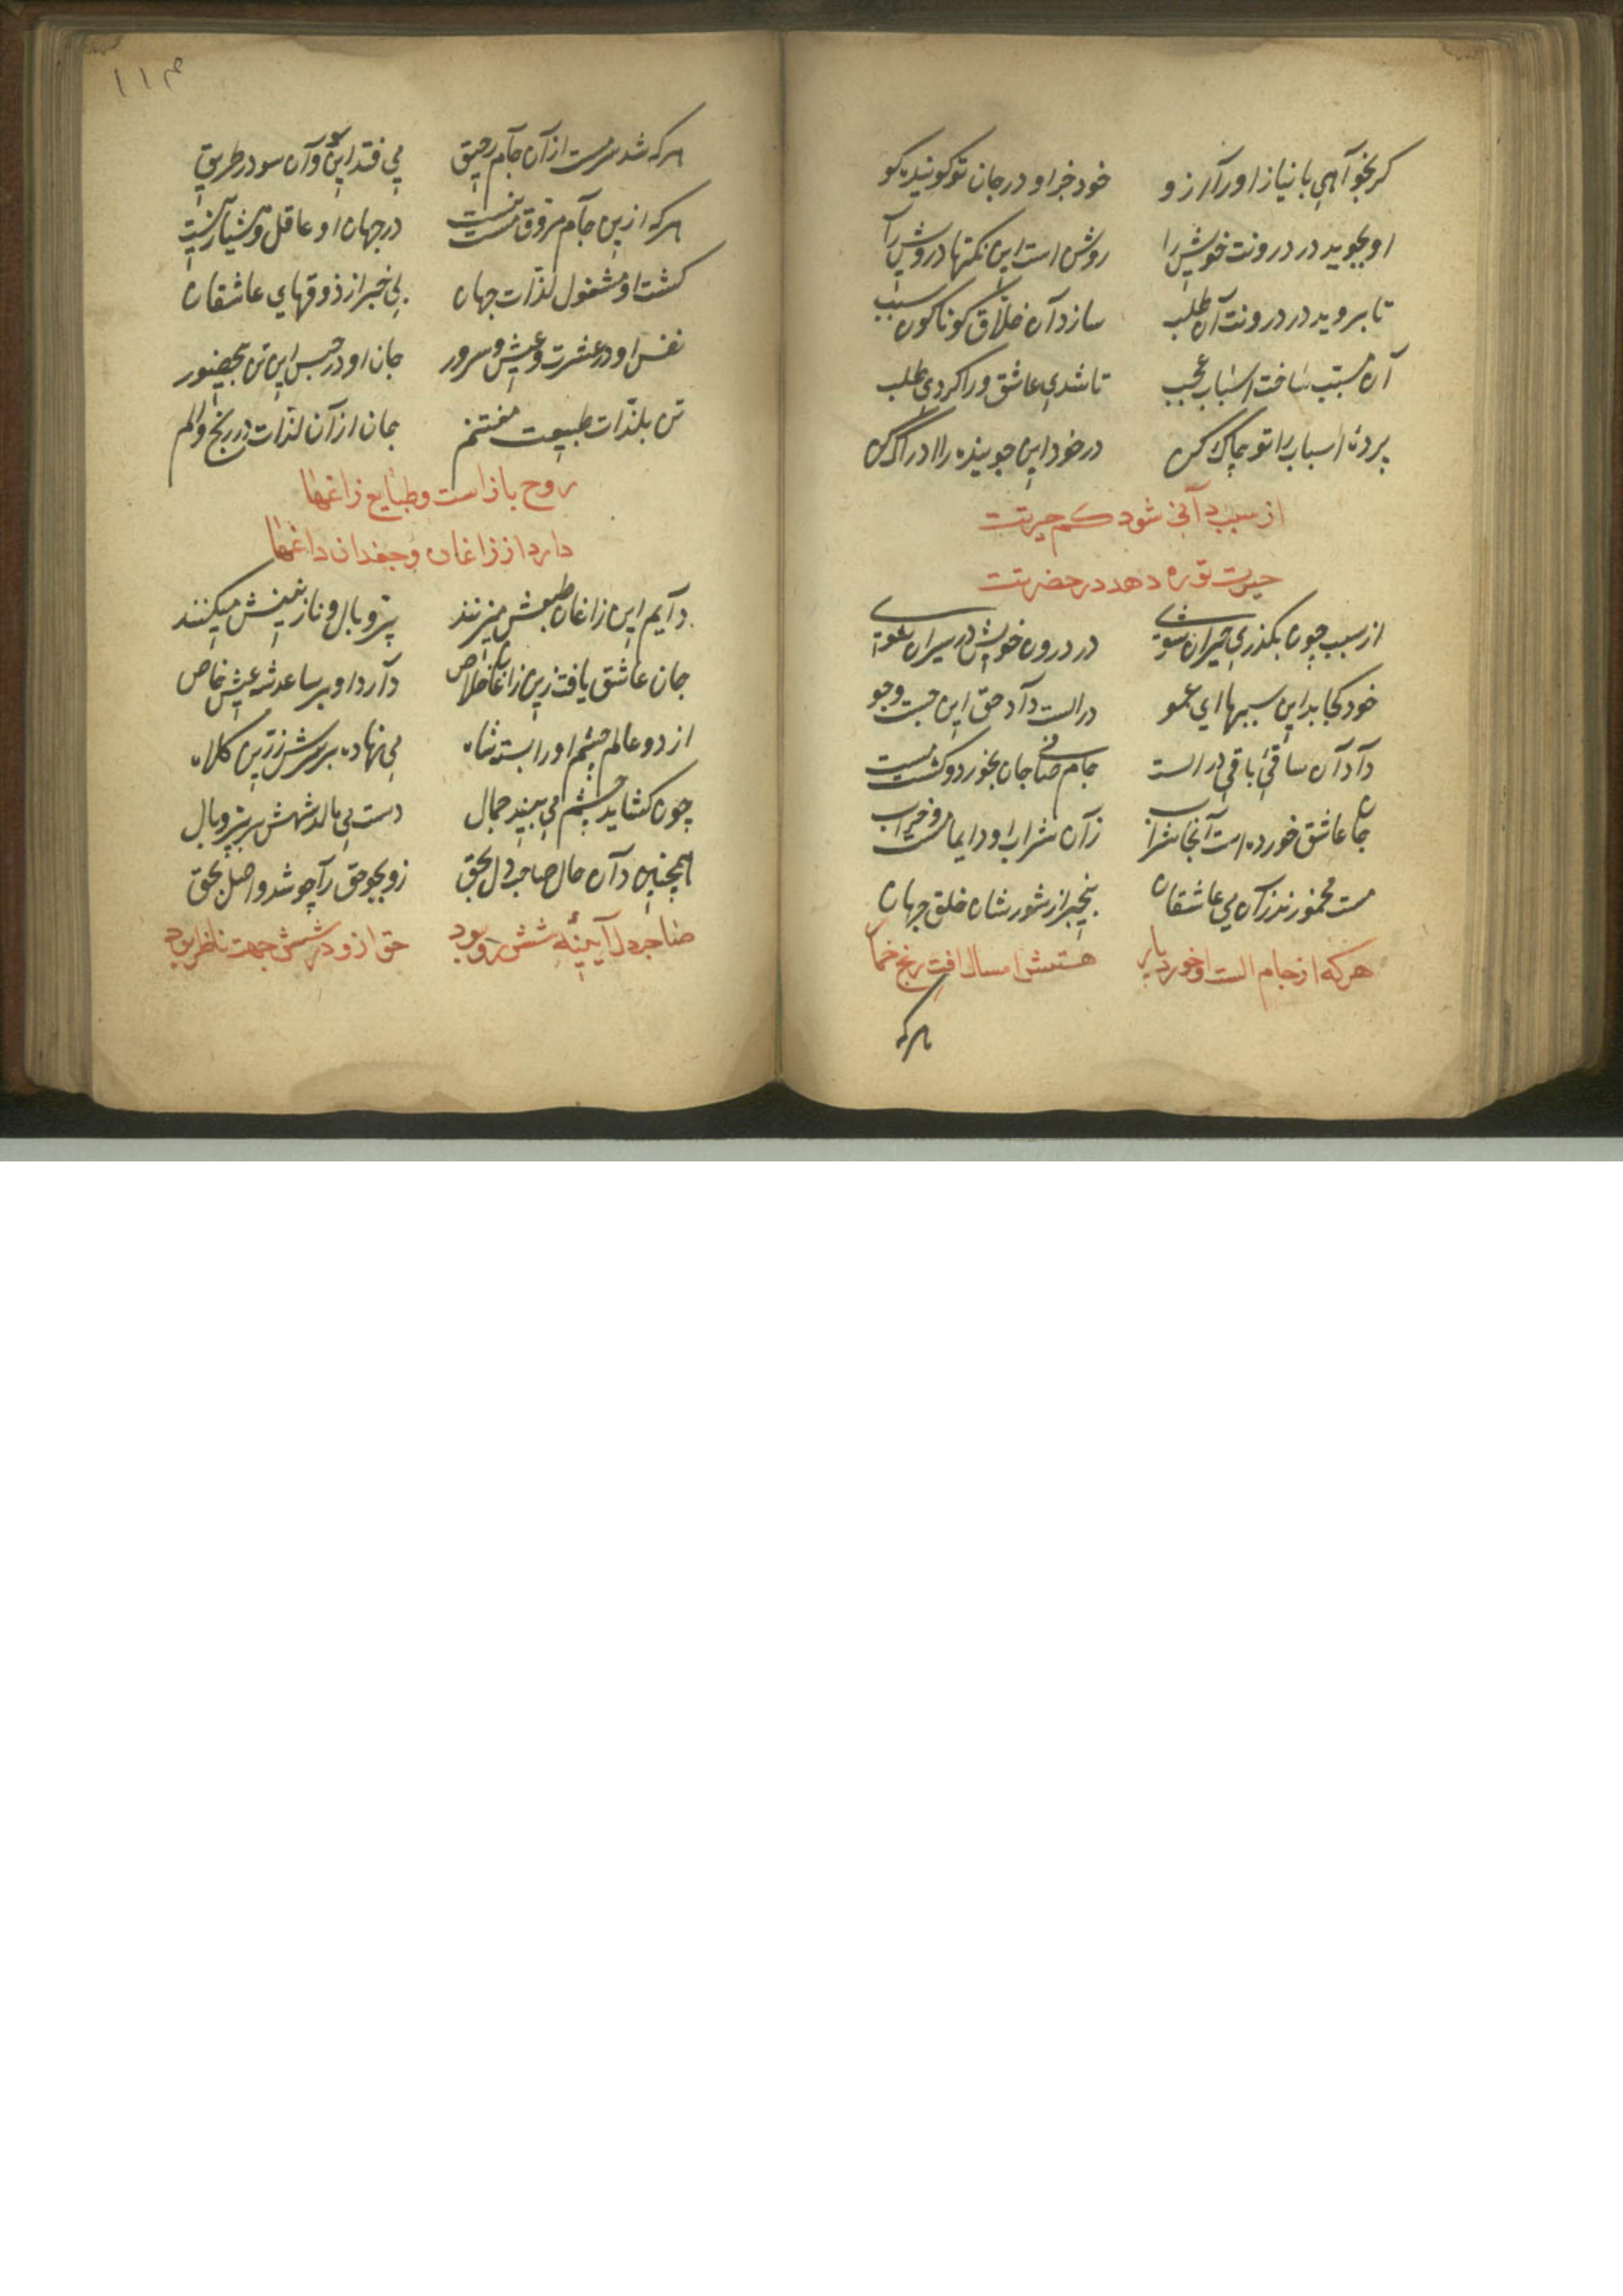 کر بخوآهی با نیاز اورآ آرزو خود خبر او در جان تو کوینده کو
او بجوید در درونت خویش را روشن است این نکتها درویش رآ
تا بروید در درونت آن طلب سازد آن خلاق کوناکون سبب
آن مسبب ساخت اسباب عجب تا شدی عاشق ورا کردی طلب
پردهٔ اسباب را تو چاک کن در خود این جوینده را ادراک کن
از سبب دآنی شود کم حیرتت
حیرت تو ره دهد در حضرتت
از سبب چون بکذری حیران شوی در درون خویش در سیران شوی
خود کجا بد این سببها ای عمو در الست دآد حق این جست وجو
دآد آن ساقئ باقی در الست جام صافی جان بخورد و کشت مست
جان عاشق خورده است آنجا شراب زآن شراب او دایما مست و خراب
مست و مخمورند زآن می عاشقان بیخبر از شورشان خلق جهان
هرکه از جام الست او خورد پار هستش امسال افت رنج خمار
هرکه
۱۱۳
هرکه شد سرمست از آن جآم رحیق می فتد این سو وآن سو در طریق
هرکه ازین جآم مروق مست نیست در جهان او عاقل و هشیار نیست
کشت او مشغول لذات جهان بی خبر از ذوقهای عاشقان
نفس او در عشرت و عیش و سرور جان او در حبس این تن بیحضور
تن بلذات طبیعت مغتنم جان از آن لذات در رنج و الم
روح باز است وطبایع زاغها
دارد از زاغان وجغدان داغها
دآیم این زاغان طبعش میزنند پر و بال و نازنینش میکنند
جان عاشق یافت زین زاغان خلاص دآرد او بر ساعد شه عیش خاص
از دو عالم چشم او را بسته شاه می نهاده بر سرش زرین کلاه
چون کشاید چشم می بیند جمال دست می مالد شهش بر پر و بال
همچنین دآن حال صاحب دل بحق زو بجو حق رآ چو شد واصل بحق
صاحب دل آیینهٔ شش رو بود حق ازو در شش جهت ناظر بود